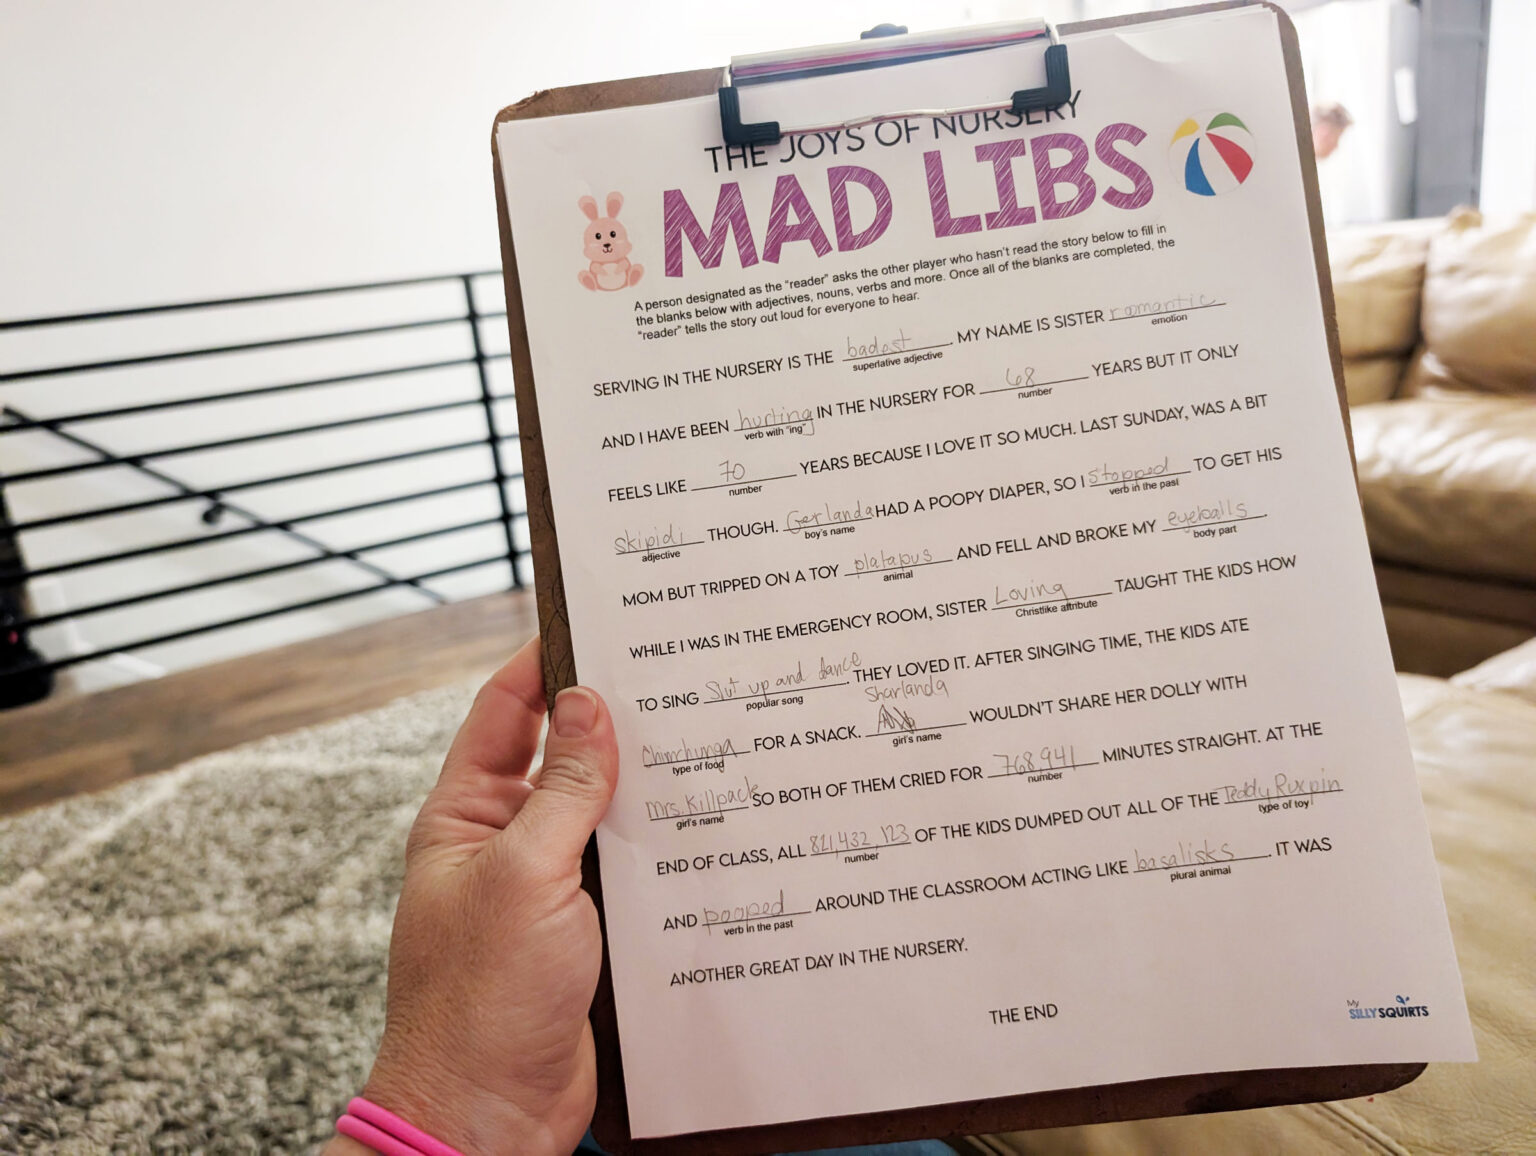 THE JOYS OF NURSERY
MAD LIBS
A person designated as the "reader" asks the other player who hasn't read the story below to fill in
the blanks below with adjectives, nouns, verbs and more. Once all of the blanks are completed, the
"reader" tells the story out loud for everyone to hear.
SERVING IN THE NURSERY IS THE badest. MY NAME IS SISTER romantic
superlative adjective emotion
AND I HAVE BEEN hurting IN THE NURSERY FOR 68 YEARS BUT IT ONLY
verb with "ing" number
FEELS LIKE 70 YEARS BECAUSE I LOVE IT SO MUCH. LAST SUNDAY, WAS A BIT
number
skipidi THOUGH. Gerlanda HAD A POOPY DIAPER, SO I stopped TO GET HIS
adjective boy's name verb in the past
MOM BUT TRIPPED ON A TOY platapus AND FELL AND BROKE MY eyeballs.
animal body part
WHILE I WAS IN THE EMERGENCY ROOM, SISTER Loving TAUGHT THE KIDS HOW
Christlike attribute
TO SING up and dance. THEY LOVED IT. AFTER SINGING TIME, THE KIDS ATE
popular song
Sharlanda
Chimchunga FOR A SNACK. WOULDN'T SHARE HER DOLLY WITH
type of food girl's name
Mrs. Killpack SO BOTH OF THEM CRIED FOR 768,941 MINUTES STRAIGHT. AT THE
girl's name number
END OF CLASS, ALL 821,432,123 OF THE KIDS DUMPED OUT ALL OF THE Teddy Ruxpin
number type of toy
AND pooped AROUND THE CLASSROOM ACTING LIKE basalisks. IT WAS
verb in the past plural animal
ANOTHER GREAT DAY IN THE NURSERY.
THE END
My
SILLYSQUIRTS